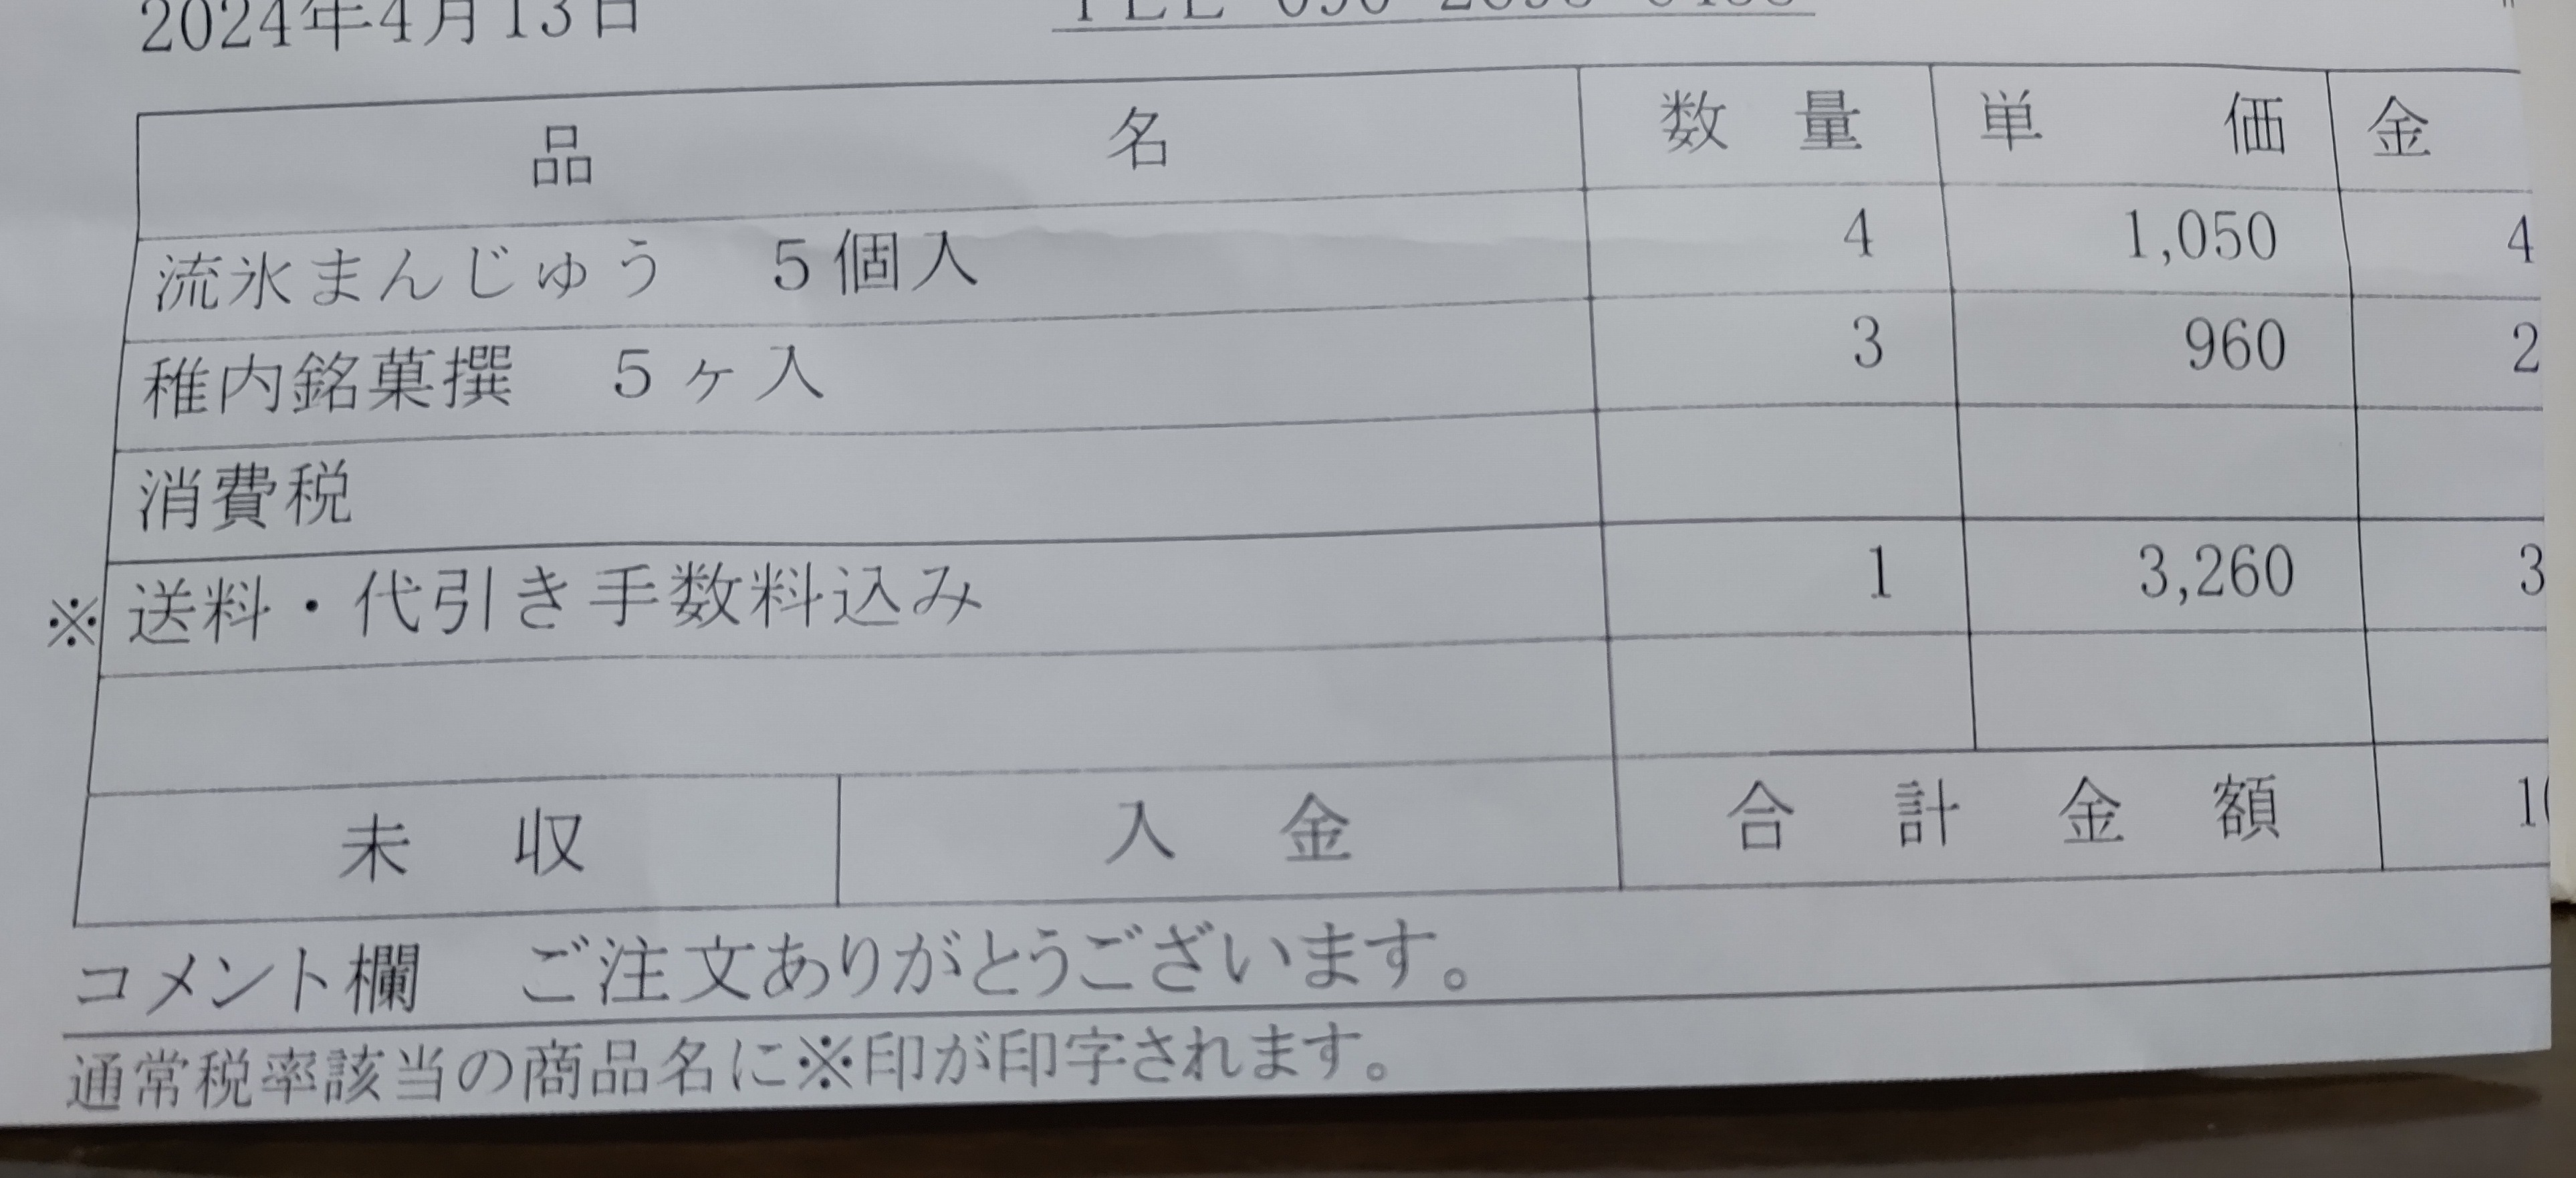 2024年4月13日 TEL
品 名 数 量 単 価 金
流氷まんじゅう 5個入 4 1,050 4
稚内銘菓撰 5ヶ入 3 960 2
消費税
※送料・代引き手数料込み 1 3,260 3
未 収 入 金 合 計 金 額 1
コメント欄 ご注文ありがとうございます。
通常税率該当の商品名に※印が印字されます。